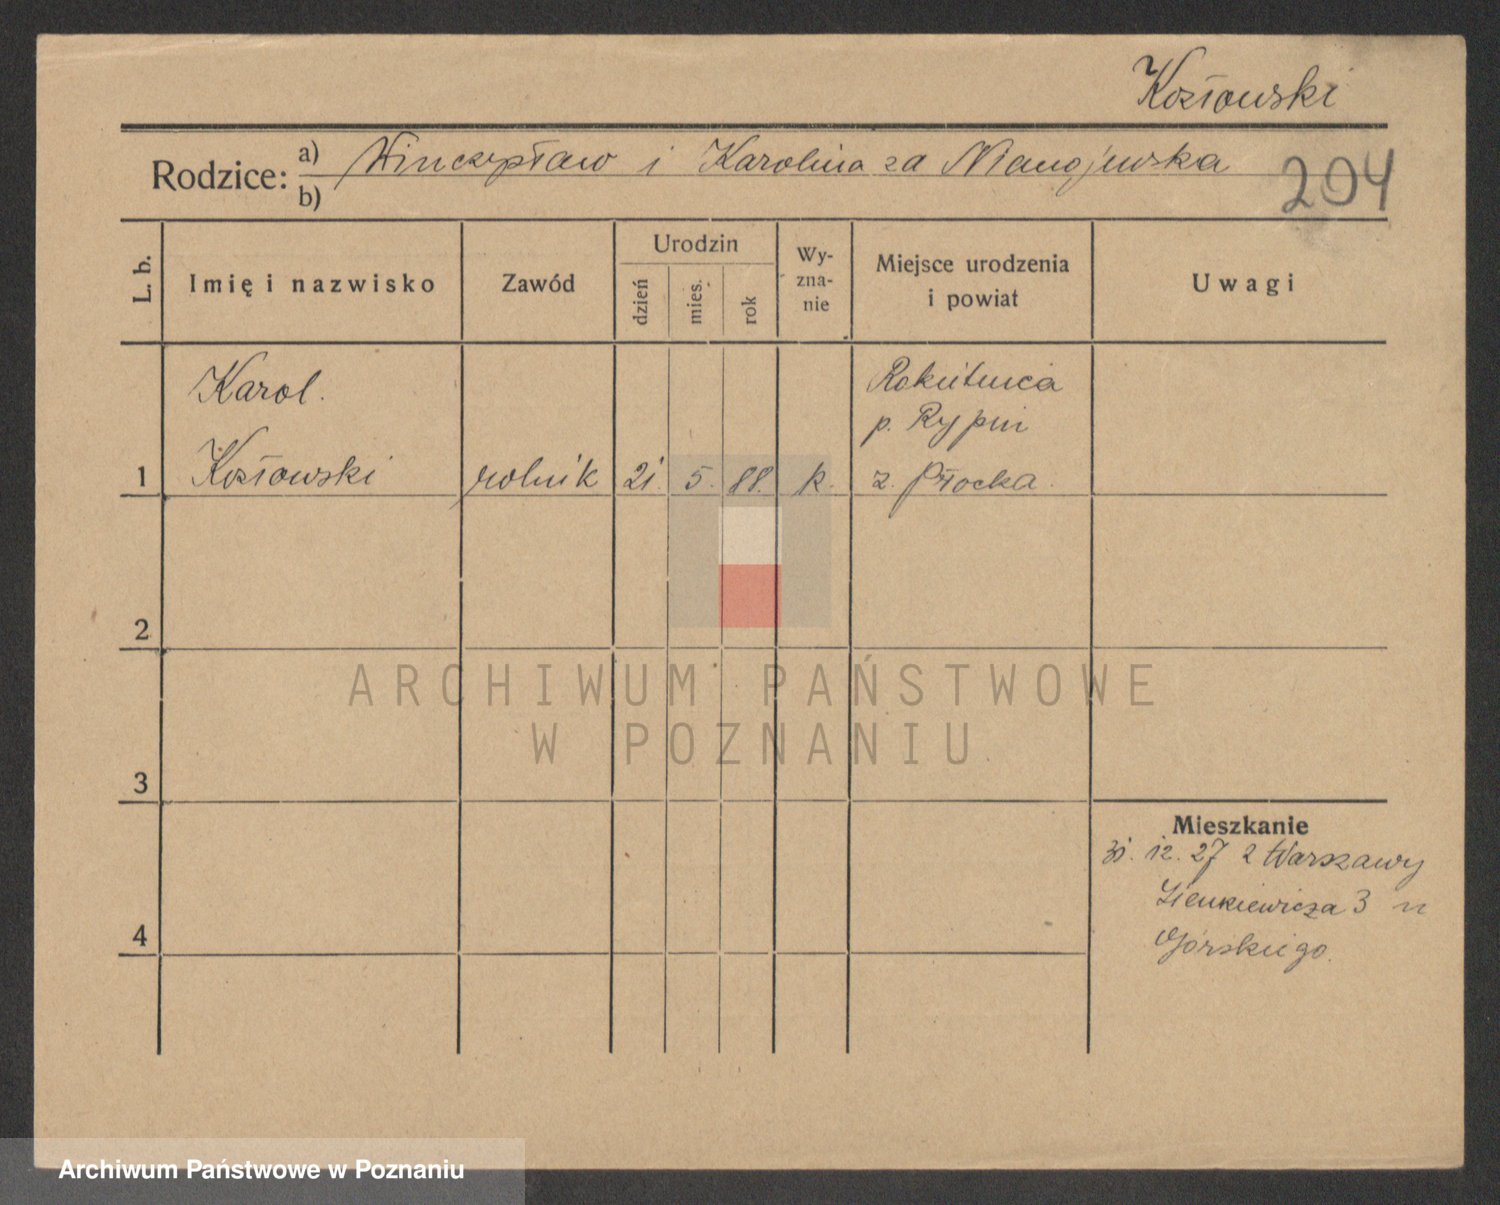 Kozłowski
Rodzice: a) Winczysław i Karolina za Nianojewska
b)
204
L. b. Imię i nazwisko Zawód Urodzin dzień mies. rok Wy-zna-nie Miejsce urodzenia i powiat Uwagi
Karol.
Rokitnica
p. Rypin
1 Kozłowski rolnik 21. 5. 88. k. z. Płocka.
2
3
4
Mieszkanie
31. 12. 27 z Warszawy
Sienkiewicza 3 u
Górskiego.
ARCHIWUM PAŃSTWOWE
W POZNANIU
Archiwum Państwowe w Poznaniu